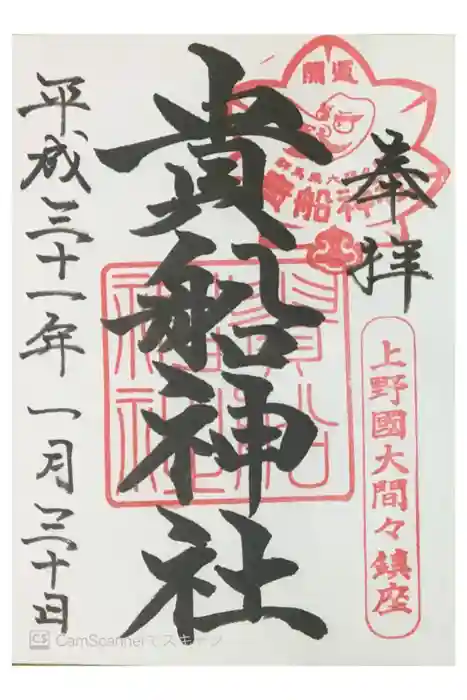 奉拝
上野國大間々鎮座
開運
貴船神社
貴船神社
平成三十一年一月三十日
CS CamScannerでスキャン